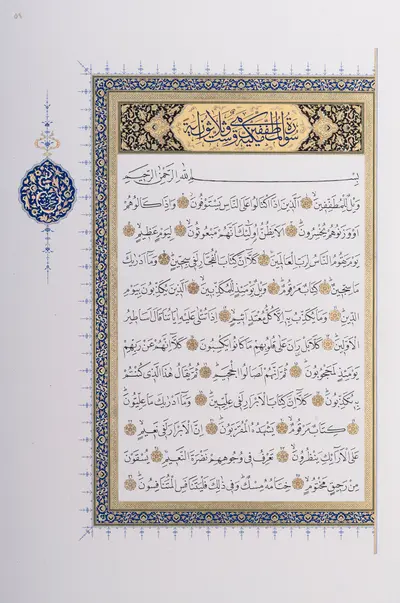 سورة المطففين مكية وهي ست وثلاثون آية
بِسْمِ اللهِ الرَّحْمٰنِ الرَّحِيمِ
وَيْلٌ لِلْمُطَفِّفِينَ الَّذِينَ اِذَا اكْتَالُوا عَلَى النَّاسِ يَسْتَوْفُونَ وَاِذَا كَالُوهُمْ
اَوْ وَزَنُوهُمْ يُخْسِرُونَ اَلَا يَظُنُّ اُولٰئِكَ اَنَّهُمْ مَبْعُوثُونَ لِيَوْمٍ عَظِيمٍ
يَوْمَ يَقُومُ النَّاسُ لِرَبِّ الْعَالَمِينَ كَلَّا اِنَّ كِتَابَ الْفُجَّارِ لَفِي سِجِّينٍ وَمَا اَدْرٰيكَ
مَا سِجِّينٌ كِتَابٌ مَرْقُومٌ وَيْلٌ يَوْمَئِذٍ لِلْمُكَذِّبِينَ الَّذِينَ يُكَذِّبُونَ بِيَوْمِ
الدِّينِ وَمَا يُكَذِّبُ بِهِ اِلَّا كُلُّ مُعْتَدٍ اَثِيمٍ اِذَا تُتْلٰى عَلَيْهِ اٰيَاتُنَا قَالَ اَسَاطِيرُ
الْاَوَّلِينَ كَلَّا بَلْ رَانَ عَلٰى قُلُوبِهِمْ مَا كَانُوا يَكْسِبُونَ كَلَّا اِنَّهُمْ عَنْ رَبِّهِمْ
يَوْمَئِذٍ لَمَحْجُوبُونَ ثُمَّ اِنَّهُمْ لَصَالُوا الْجَحِيمِ ثُمَّ يُقَالُ هٰذَا الَّذِي كُنْتُمْ
بِهِ تُكَذِّبُونَ كَلَّا اِنَّ كِتَابَ الْاَبْرَارِ لَفِي عِلِّيِّينَ وَمَا اَدْرٰيكَ مَا عِلِّيُّونَ
كِتَابٌ مَرْقُومٌ يَشْهَدُهُ الْمُقَرَّبُونَ اِنَّ الْاَبْرَارَ لَفِي نَعِيمٍ
عَلَى الْاَرَائِكِ يَنْظُرُونَ تَعْرِفُ فِي وُجُوهِهِمْ نَضْرَةَ النَّعِيمِ يُسْقَوْنَ
مِنْ رَحِيقٍ مَخْتُومٍ خِتَامُهُ مِسْكٌ وَفِي ذٰلِكَ فَلْيَتَنَافَسِ الْمُتَنَافِسُونَ